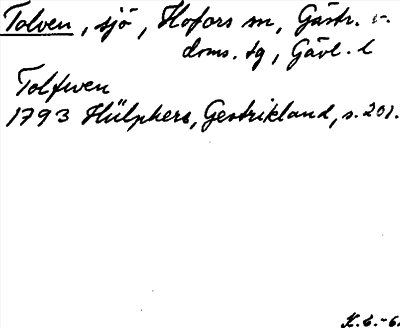 Tolven, sjö, Hofors sn, Gästr. v.
doms. tg, Gävl. l
Tolfwen
1793 Hülphers, Gestrikland, s. 201.